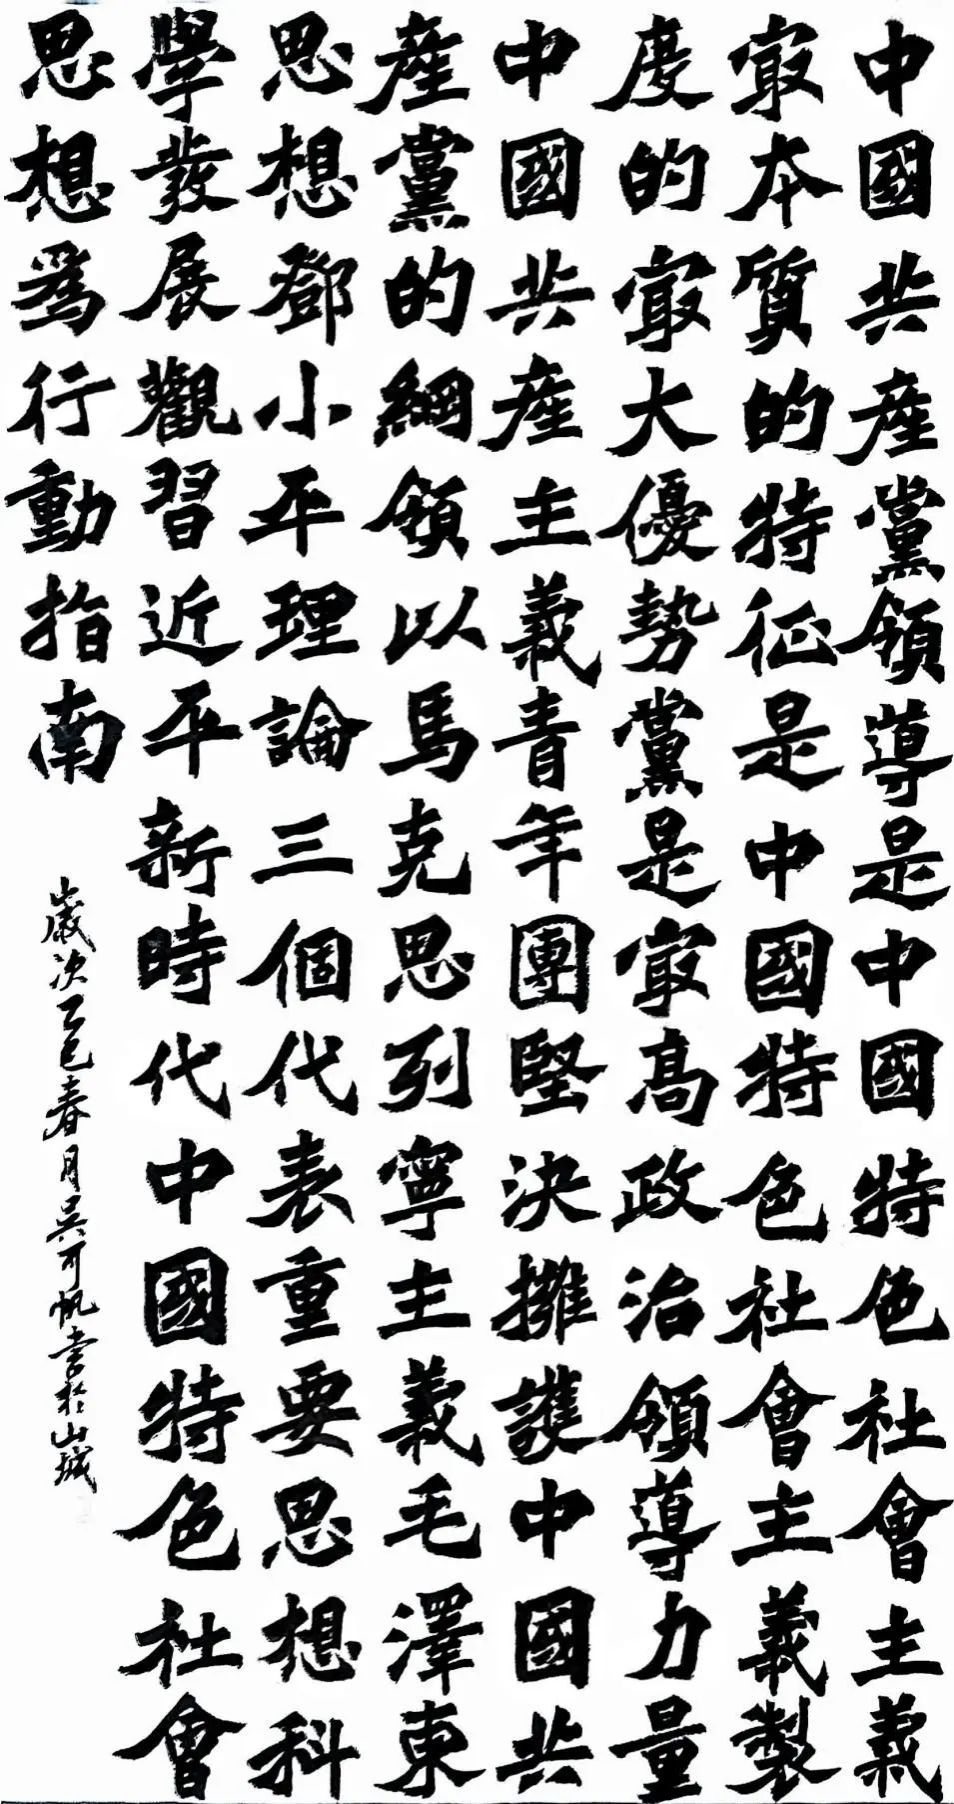 中國共產黨領導是中國特色社會主義
最本質的特征是中國特色社會主義製
度的最大優勢黨是最高政治領導力量
中國共產主義青年團堅決擁護中國共
產黨的綱領以馬克思列寧主義毛澤東
思想鄧小平理論三個代表重要思想科
學發展觀習近平新時代中國特色社會
思想為行動指南
歲次乙巳春月吳可帆書於山城